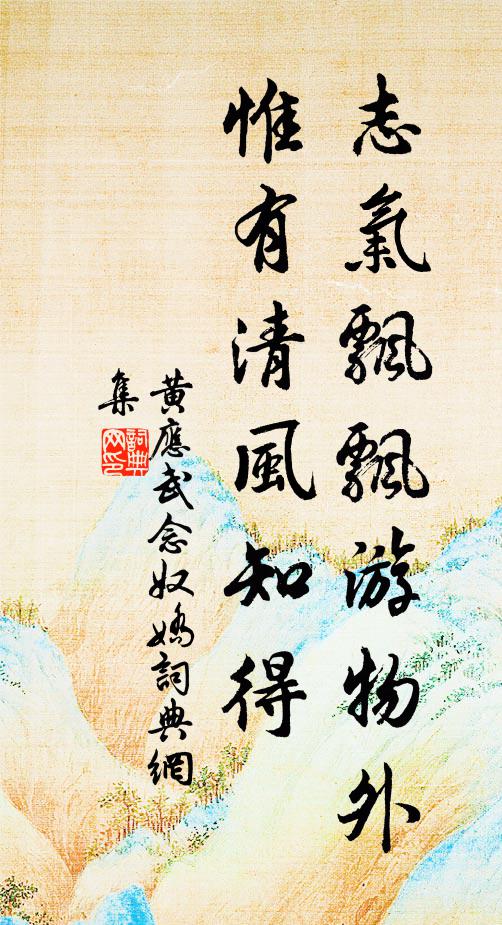 志氣飄飄游物外
惟有清風知得
黃應武念奴嬌詞典網
集
詞典
网印